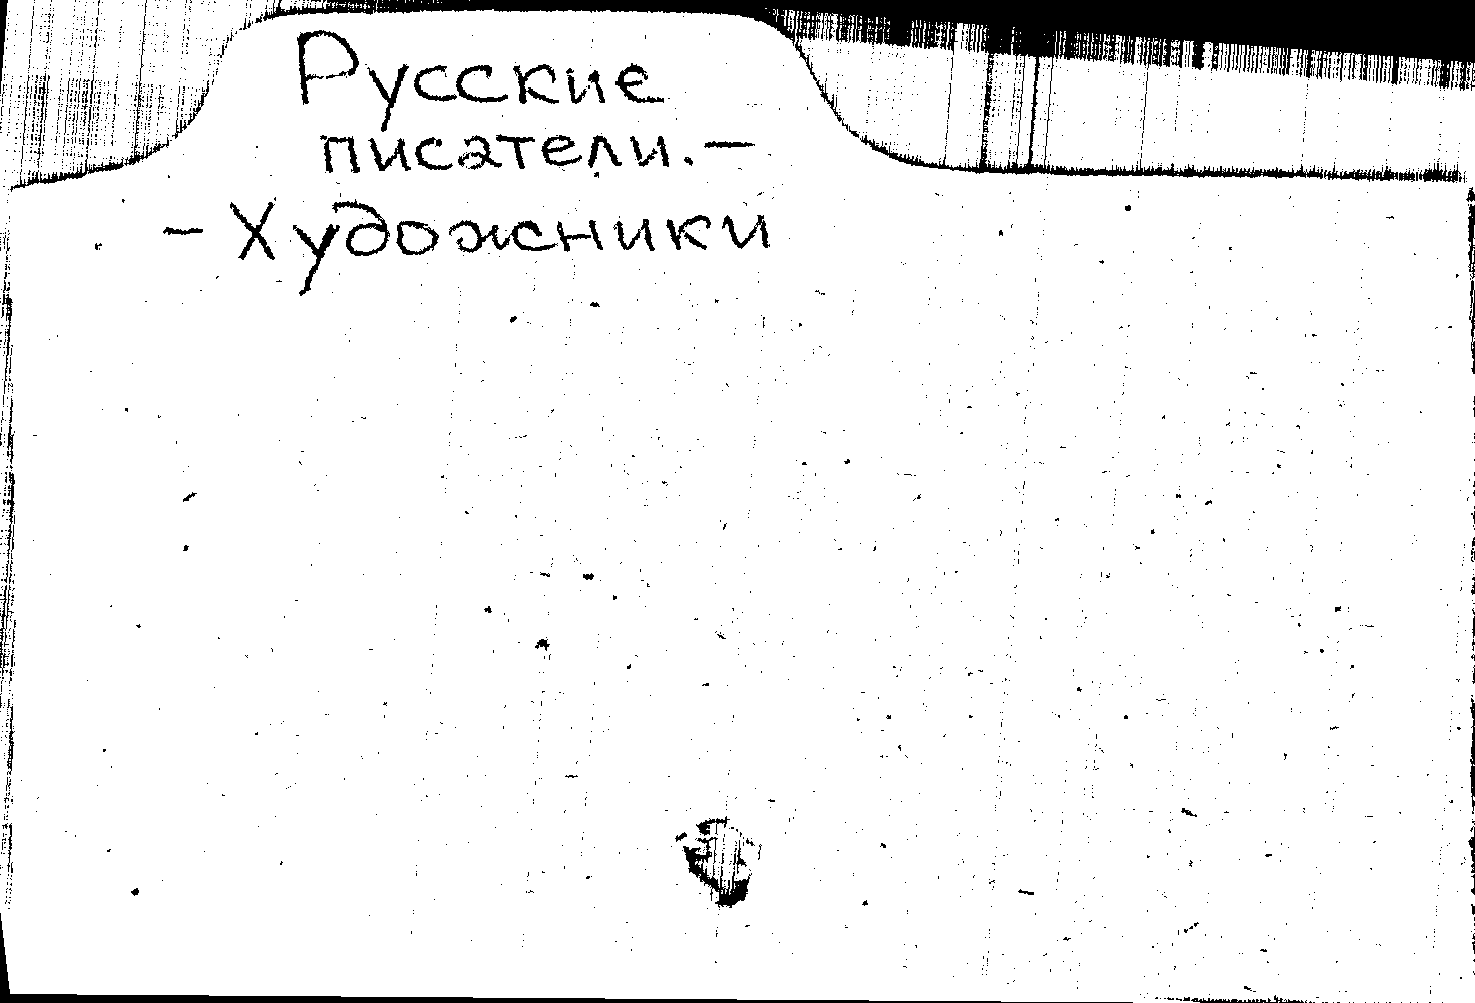 Русские
писатели.–
– Художники